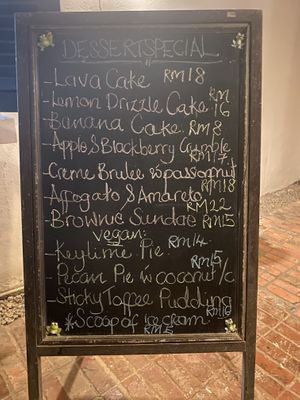 DESSERTSPECIAL
-Lava Cake RM18
-Lemon Drizzle Cake RM16
-Banana Cake RM8
-Apple & Blackberry Crumble RM17
-Creme Brulee & passionfruit RM18
-Affogato & Amareto RM22
-Brownie Sundae RM15
Vegan:
-Keylime Pie RM14
-Pecan Pie w coconut i/c RM15
-Sticky Toffee Pudding RM16
*Scoop of ice cream RM5